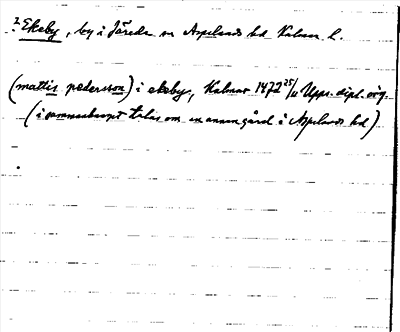 2. Ekeby, by i Järeda sn Aspelands hd Kalmar l.
(mattis pedersson) i ekeby, Kalmar 1472 25/11 Upps. dipl. orig.
(i sammanhanget talas om en annan gård i Aspelands hd)